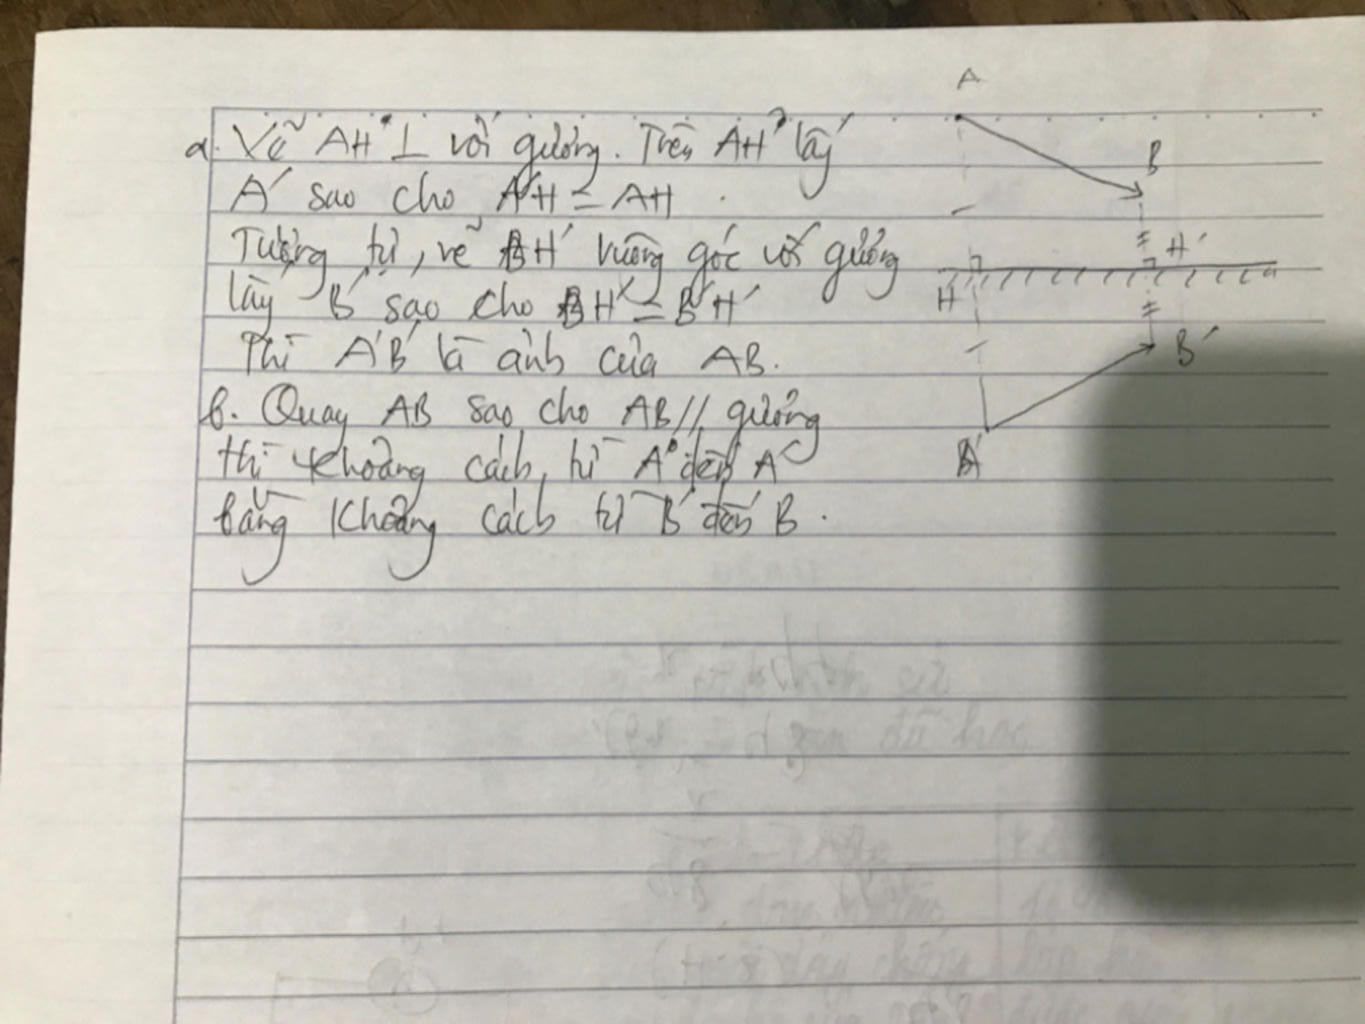 A
a. Vẽ AH ⊥ với gương. Trên AH lấy
B
A' sao cho A'H = AH
Tương tự, vẽ BH' vuông góc với gương
H'
lấy B' sao cho BH' = B'H'
H
Thì A'B' là ảnh của AB.
B'
b. Quay AB sao cho AB // gương
thì khoảng cách từ A' đến A
A'
bằng khoảng cách từ B' đến B.